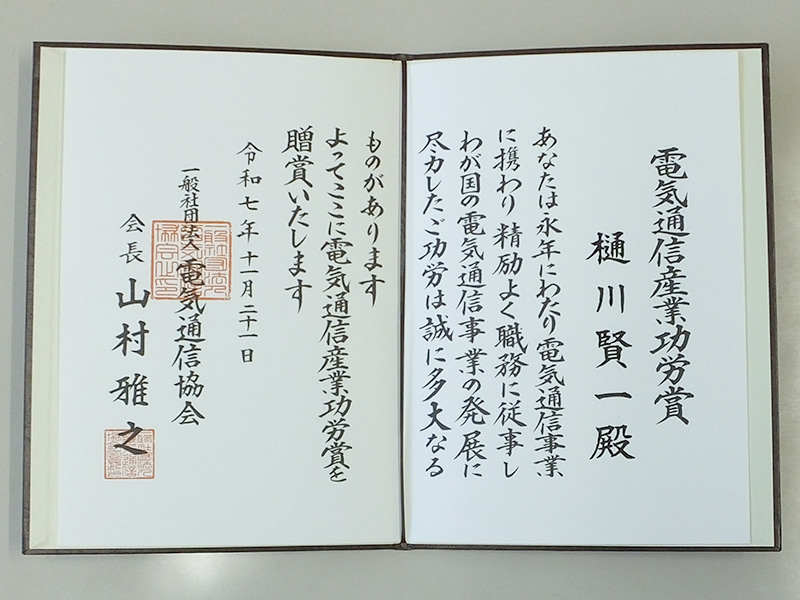 電気通信産業功労賞
樋川賢一殿
あなたは永年にわたり電気通信事業
に携わり精励よく職務に従事し
わが国の電気通信事業の発展に
尽力したご功労は誠に多大なる
ものがあります
よってここに電気通信産業功労賞を
贈賞いたします
令和七年十一月二十一日
一般社団法人電気通信協会
会長 山村雅之